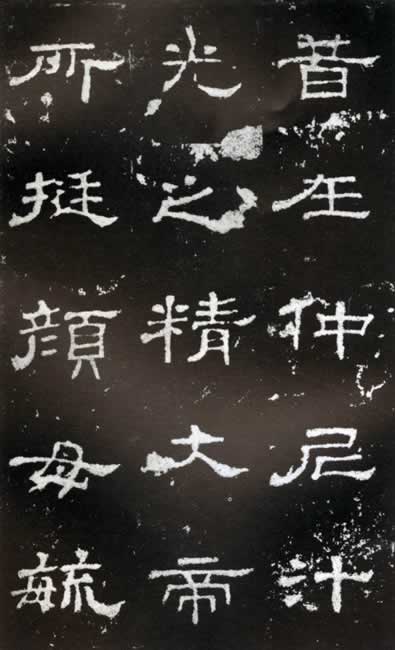 昔在仲尼汁
光之精大帝
所挺顏母毓